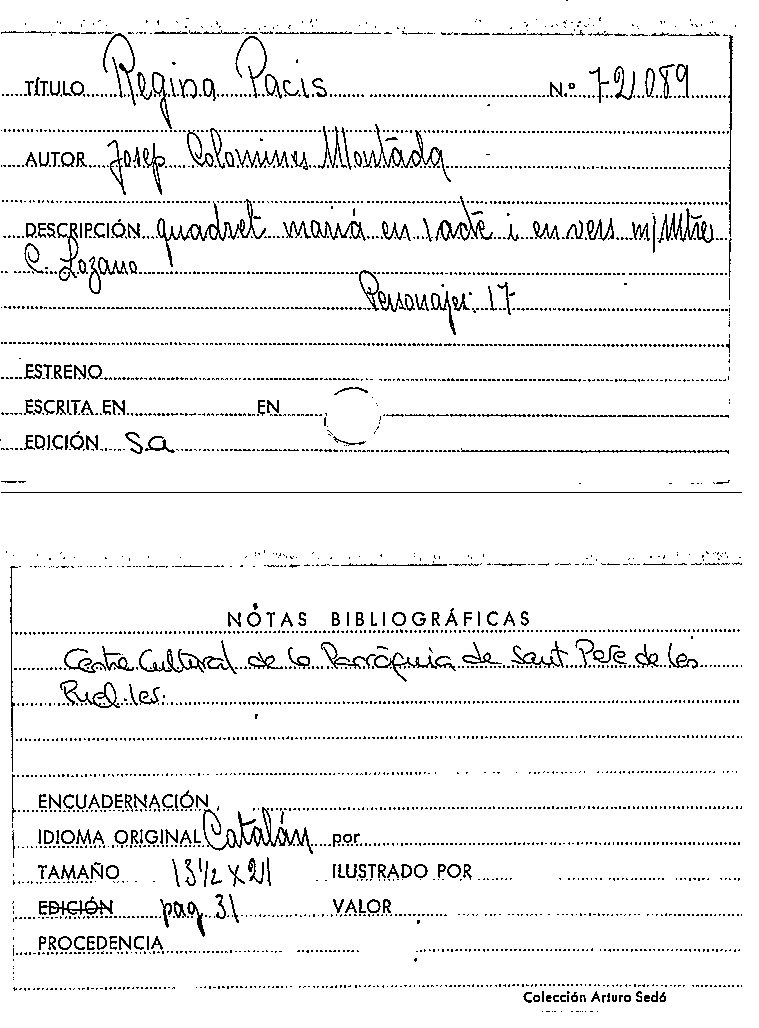 TÍTULO Regina Pacis N.º 72089
AUTOR Josep Colomines Montada
DESCRIPCIÓN quadret marià en 1 acte i en vers m/Mtre
C. Lozano
Personajes: 17
ESTRENO
ESCRITA EN EN
EDICIÓN Sa
NOTAS BIBLIOGRÁFICAS
Centre Cultural de la Parròquia de Sant Pere de les
Puel·les.
ENCUADERNACIÓN
IDIOMA ORIGINAL Catalán por
TAMAÑO 13½ x 21 ILUSTRADO POR
EDICIÓN pag 31 VALOR
PROCEDENCIA
Colección Arturo Sedó